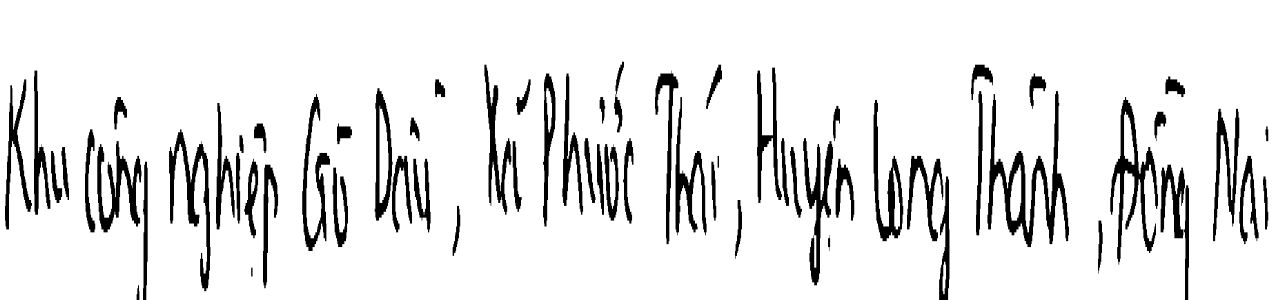 Khu công nghiệp Gò Dầu, Xã Phước Thái, Huyện Long Thành, Đồng Nai